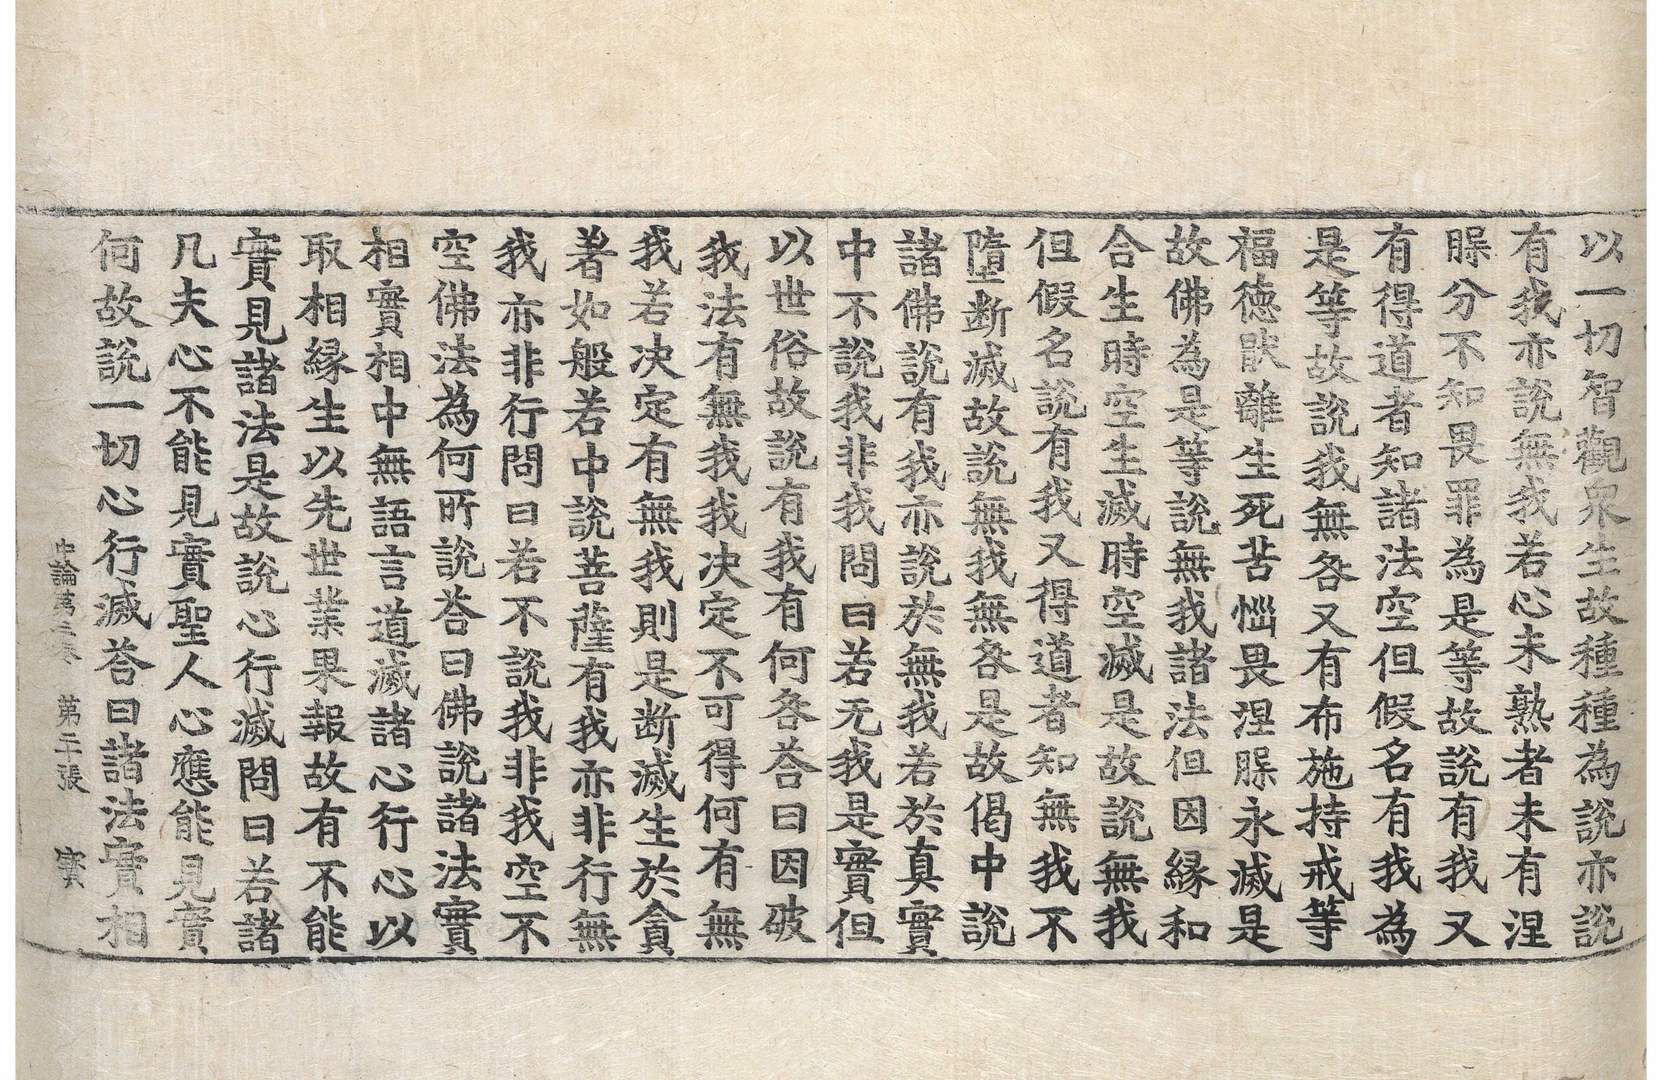 以一切智觀衆生故種種為說亦說
有我亦說無我若心未熟者未有涅
槃分不知畏罪為是等故說有我又
有得道者知諸法空但假名有我為
是等故說我無咎又有布施持戒等
福德猒離生死苦惱畏涅槃永滅是
故佛為是等說無我諸法但因緣和
合生時空生滅時空滅是故說無我
但假名說有我又得道者知無我不
墮斷滅故說無我無咎是故偈中說
諸佛說有我亦說於無我若於真實
中不說我非我問曰若无我是實但
以世俗故說有我有何咎荅曰因破
我法有無我我決定不可得何有無
我若決定有無我則是斷滅生於貪
著如般若中說菩薩有我亦非行無
我亦非行問曰若不說我非我空不
空佛法為何所說荅曰佛說諸法實
相實相中無語言道滅諸心行心以
取相緣生以先世業果報故有不能
實見諸法是故說心行滅問曰若諸
凡夫心不能見實聖人心應能見實
何故說一切心行滅荅曰諸法實相
中論第三卷 第二十張 實